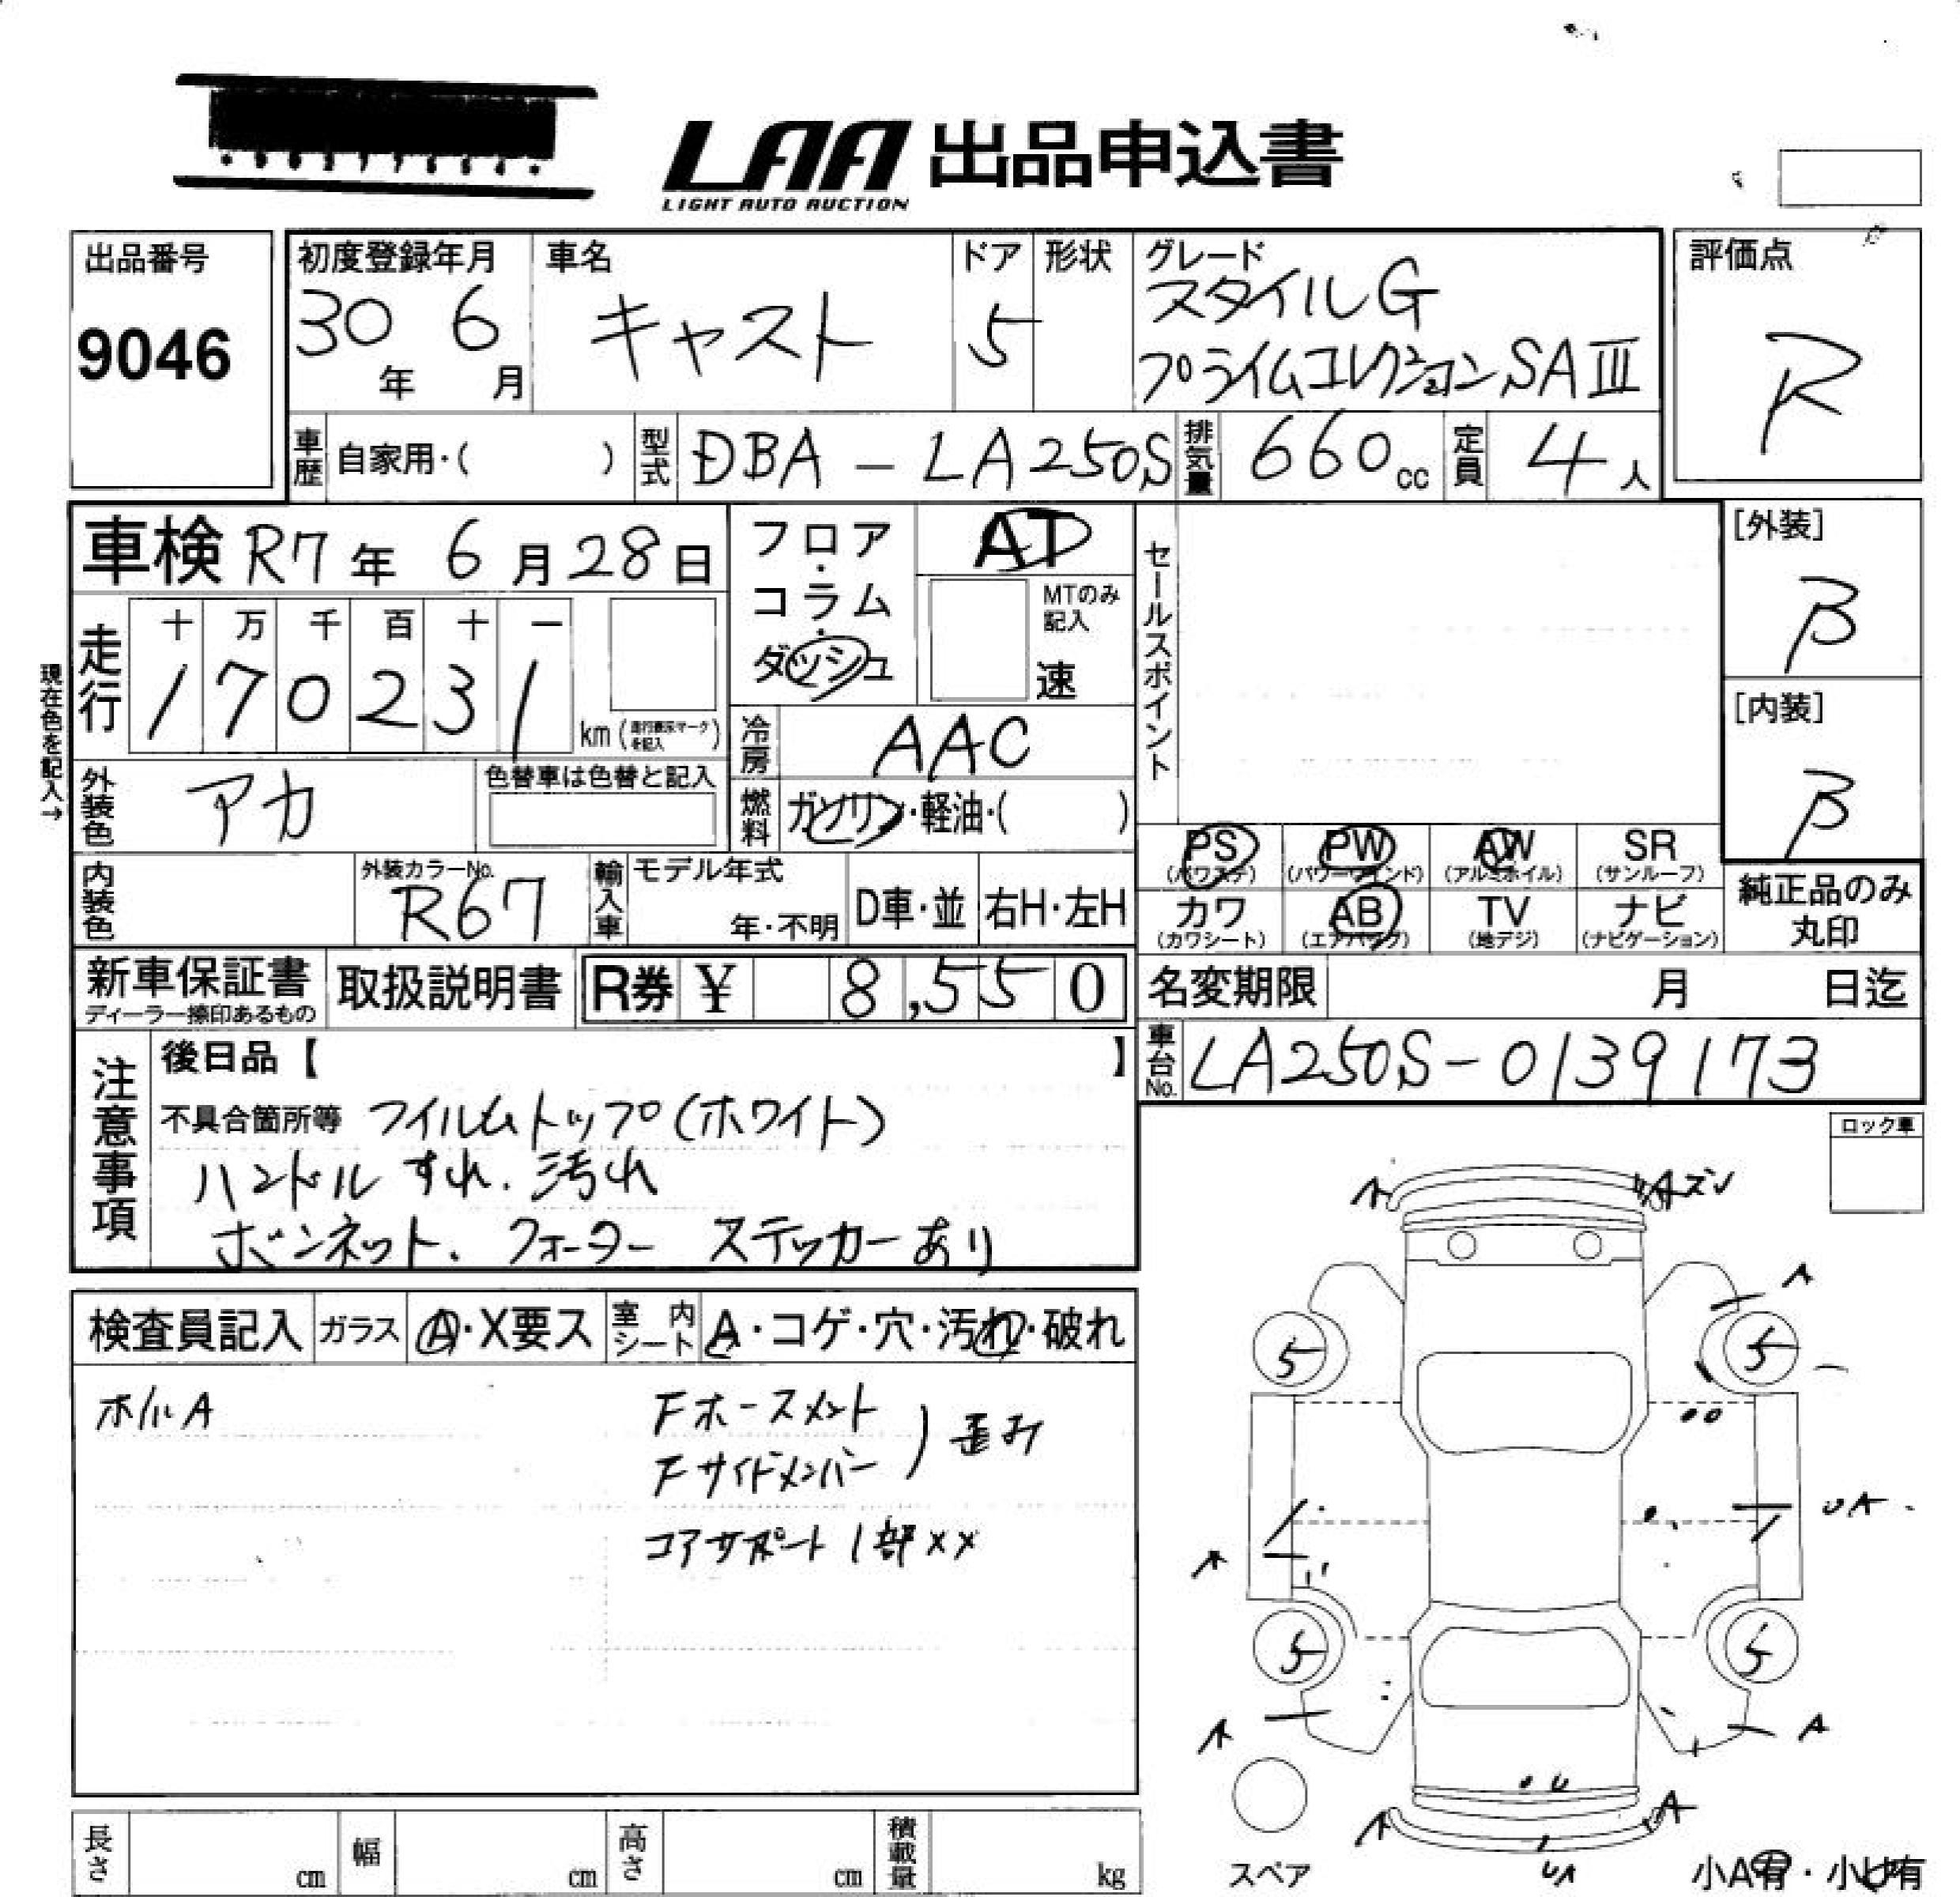 LAA 出品申込書
LIGHT AUTO AUCTION
出品番号
9046
初度登録年月
30年 6月
車名
キャスト
ドア
5
形状
グレード
スタイルG
プライムコレクションSAⅢ
評価点
R
車歴 自家用・( )
型式 DBA-LA250S
排気量 660cc
定員 4人
車検 R7年 6月28日
フロア・コラム・ダッシュ
AT
MTのみ記入
速
セールスポイント
[外装]
B
[内装]
B
現在色を記入→
走行
十 万 千 百 十 一
1 7 0 2 3 1
km(走行表示マークを記入)
冷房 AAC
外装色 アカ
色替車は色替と記入
燃料 ガソリン・軽油・( )
PS (パワステ)
PW (パワーウインド)
AW (アルミホイル)
SR (サンルーフ)
カワ (カワシート)
AB (エアバック)
TV (地デジ)
ナビ (ナビゲーション)
純正品のみ丸印
内装色
外装カラーNo.
R67
輸入車
モデル年式
年・不明
D車・並
右H・左H
新車保証書
ディーラー捺印あるもの
取扱説明書
R券 ¥ 8,550
名変期限 月 日迄
車台No. LA250S-0139173
注意事項
後日品【 】
不具合箇所等 フイルムトップ(ホワイト)
ハンドル すれ.汚れ
ボンネット、フォーター ステッカーあり
ロック車
検査員記入
ガラス
A・X要ス
室内シート
A・コゲ・穴・汚れ・破れ
ホイルA
Fホースメント
Fサイドメンバー
)歪み
コアサポート1部××
A
Aズレ
A
5
5
UA
A
5
5
A
A
A
A
UA
スペア
小A有・小U有
長さ cm
幅 cm
高さ cm
積載量 kg